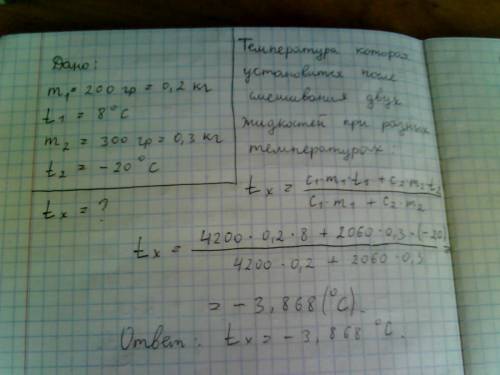 Дано:
m₁ = 200 гр = 0,2 кг
t₁ = 8°C
m₂ = 300 гр = 0,3 кг
t₂ = -20°C
tₓ = ?
Температура которая
установится после
смешивания двух
жидкостей при разных
температурах:
tₓ = (c₁·m₁·t₁ + c₂·m₂·t₂) / (c₁·m₁ + c₂·m₂)
tₓ = (4200·0,2·8 + 2060·0,3·(-20)) / (4200·0,2 + 2060·0,3) =
= -3,868 (°C).
Ответ: tₓ = -3,868 °C.